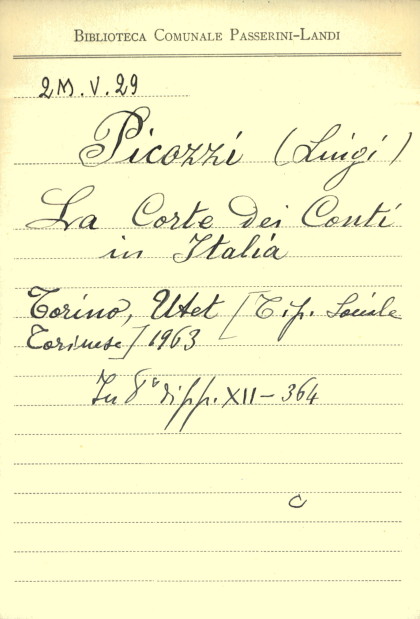 BIBLIOTECA COMUNALE PASSERINI-LANDI
2M.V.29
Picozzi (Luigi)
La Corte dei Conti
in Italia
Torino, Utet [Tip. Sociale
Torinese] 1963
In 8° di pp. XII-364
C